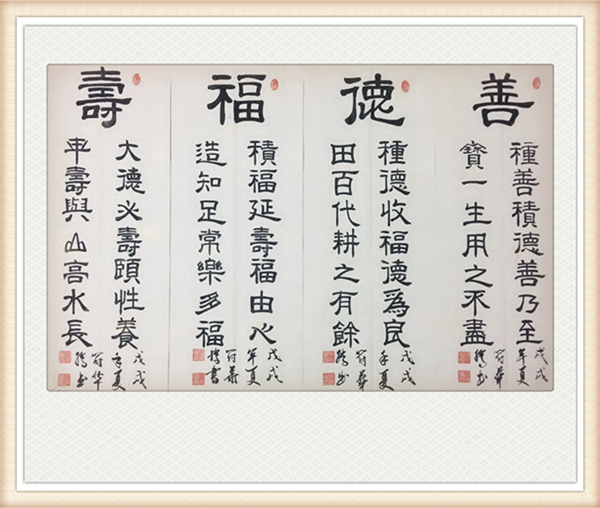 善
種善積德善乃至
寶一生用之不盡
戊戌
年夏
德
種德收福德爲良
田百代耕之有餘
戊戌
年夏
福
積福延壽福由心
造知足常樂多福
戊戌
年夏
書
壽
大德必壽頤性養
年壽與山高水長
戊戌
年夏